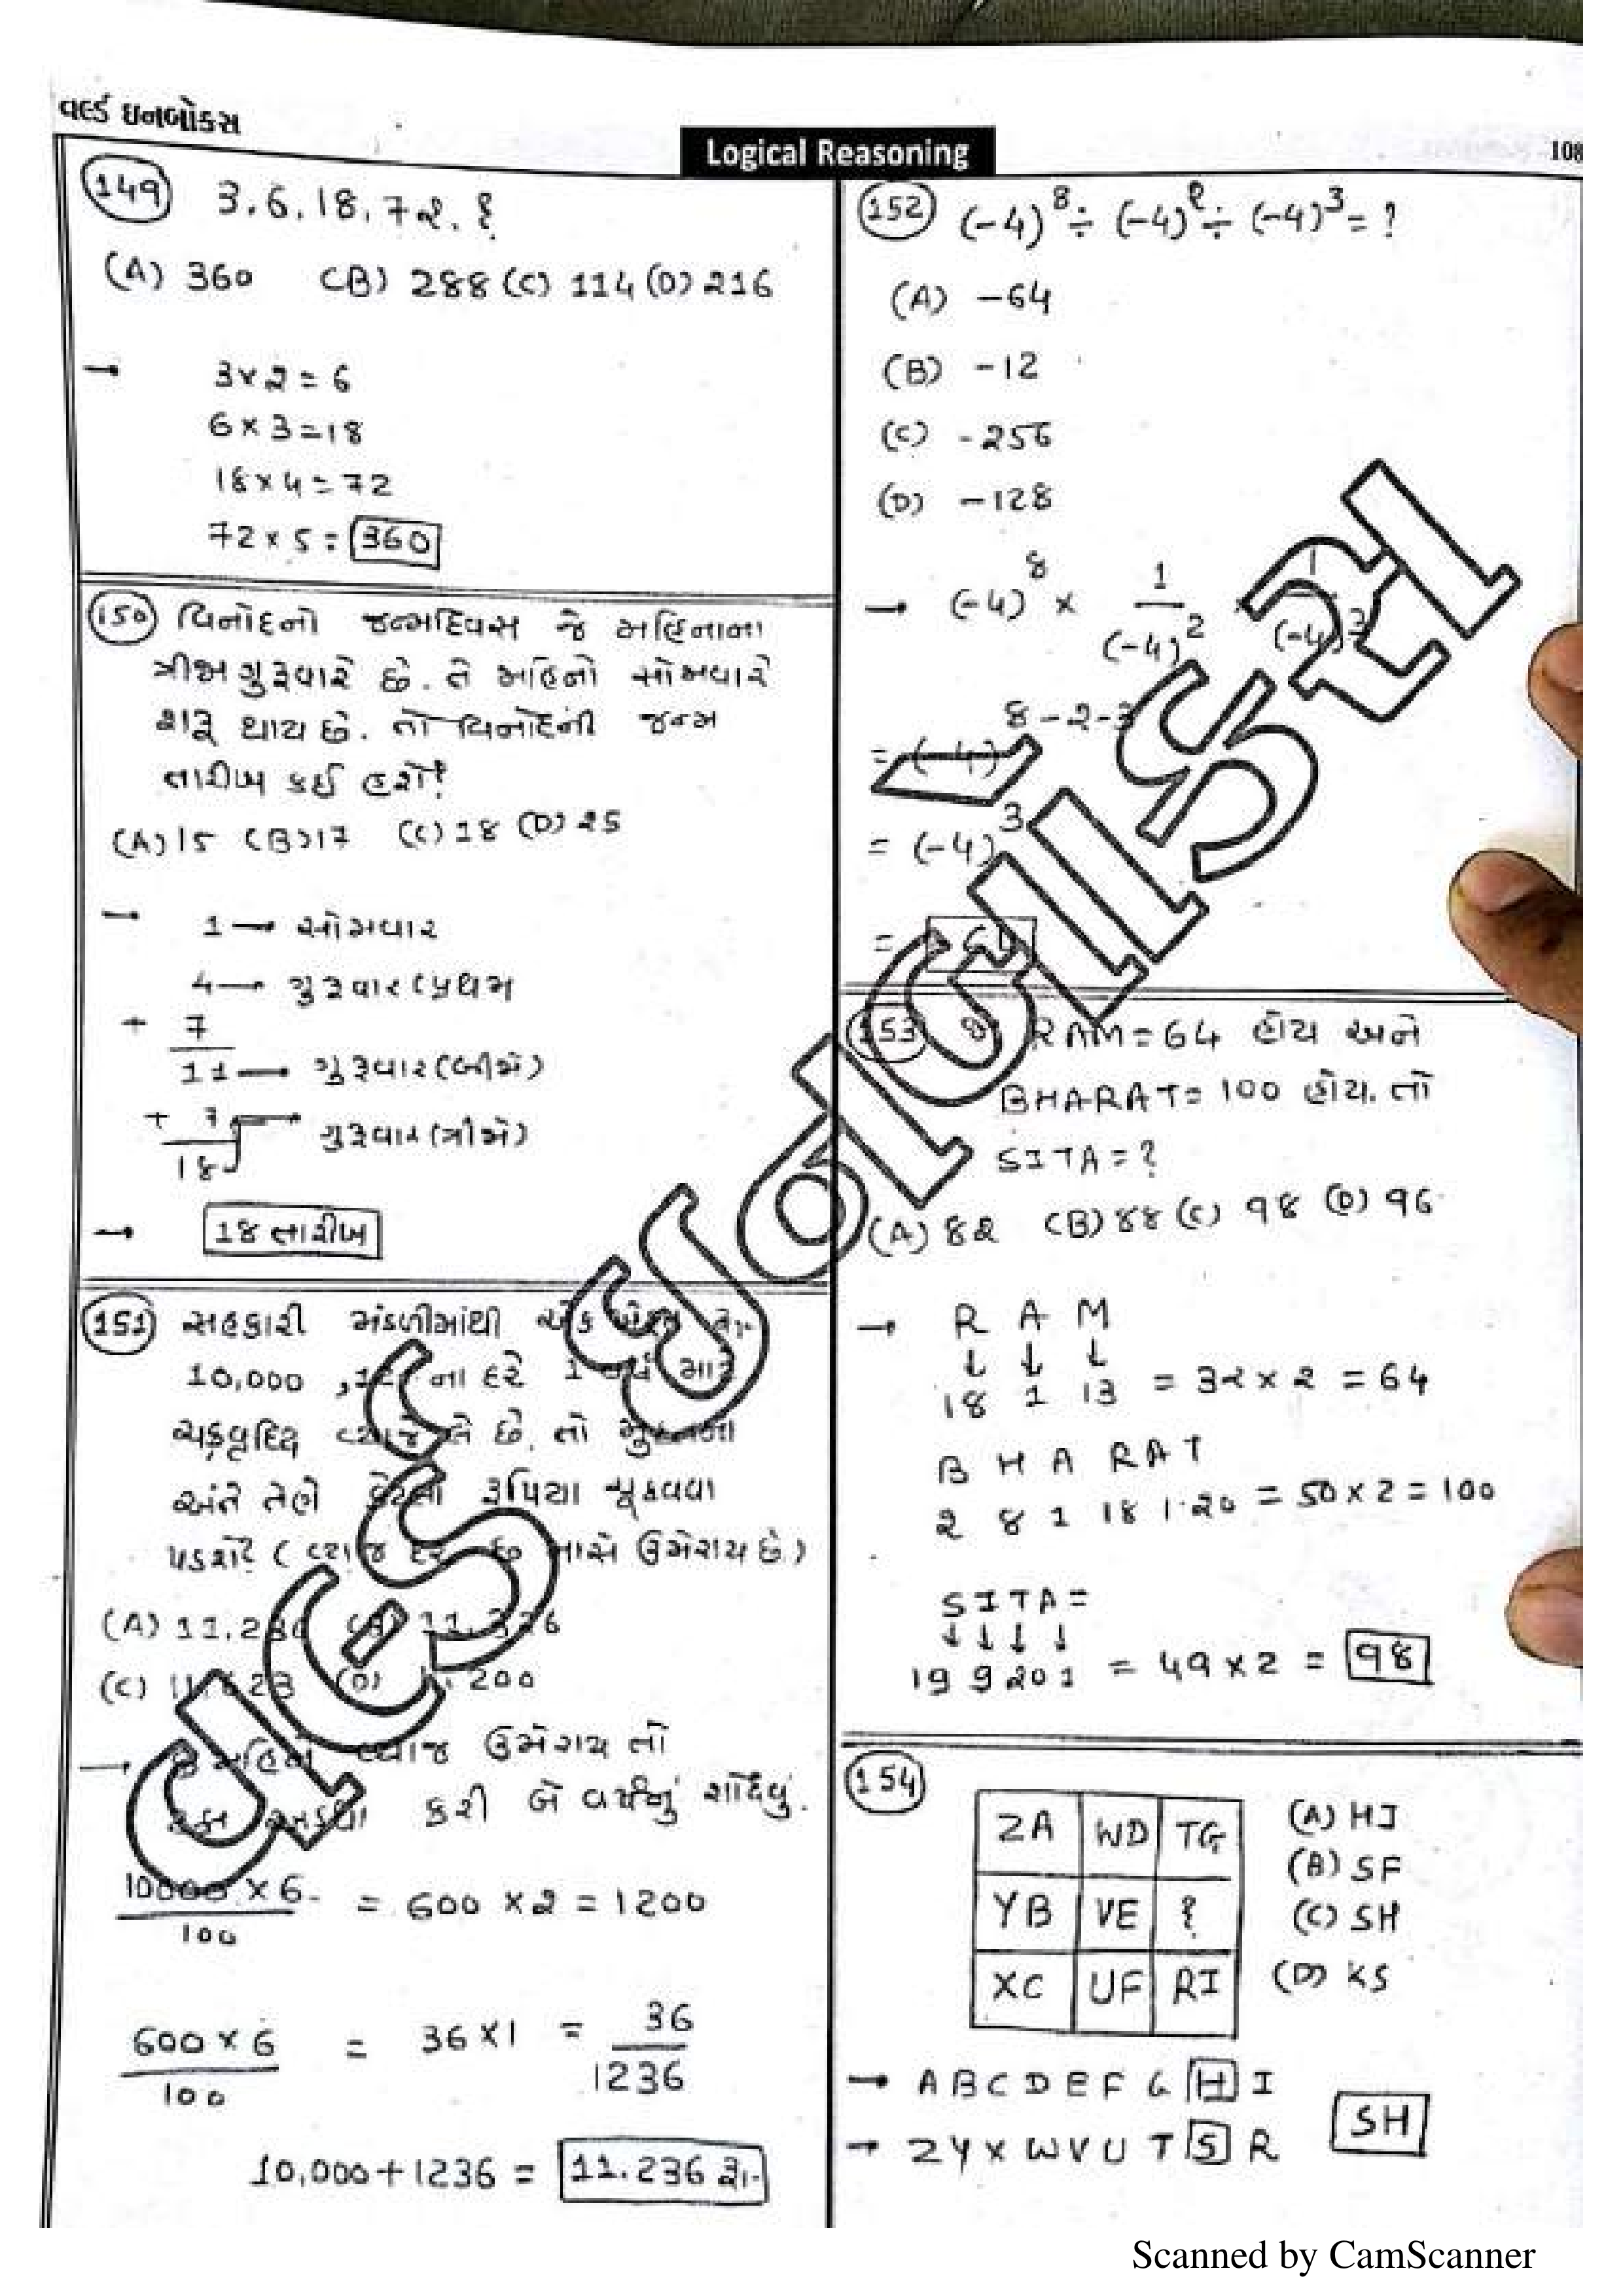 વર્લ્ડ ઇનબોક્સ
Logical Reasoning
108
149 3, 6, 18, 7૨, ?
(A) 360 (B) 288 (C) 114 (D) ૨16
3 × ૨ = 6
6 × 3 = 18
18 × 4 = 72
72 × 5 = 360
150 વિનોદનો જન્મદિવસ જે મહિનાના
ત્રીજા ગુરૂવારે છે. તે મહિનો સોમવારે
શરૂ થાય છે. તો વિનોદની જન્મ
તારીખ કઈ હશે?
(A) 15 (B) 17 (C) 18 (D) ૨5
→ 1 → સોમવાર
4 → ગુરૂવાર (પ્રથમ
+ 7
11 → ગુરૂવાર (બીજો)
+ 7 → ગુરૂવાર (ત્રીજો)
18
→ 18 તારીખ
151 સહકારી મંડળીમાંથી એક રૂ.
10,000 , ના દરે 1 વર્ષ માટે
ચક્રવૃદ્ધિ વ્યાજે લે છે. તો મુદ્દતના
અંતે તેણે કેટલા રૂપિયા ચૂકવવા
પડશે? ( વ્યાજ દર માસે ઉમેરાય છે.)
(A) 11,236 (B) 11,336
(C) 11,623 (D) 11,200
→ વ્યાજ ઉમેરાય તો
કરી બે વર્ષનું શોધવું.
10000 × 6 / 100 = 600 × ૨ = 1200
600 × 6 / 100 = 36 × 1 = 36
1236
10,000 + 1236 = 11,236 રૂ.
152 (-4)⁸ ÷ (-4)² ÷ (-4)³ = ?
(A) -64
(B) -12
(C) -૨56
(D) -128
→ (-4)⁸ × 1/(-4)² × 1/(-4)³
= (-4)⁸⁻²⁻³
= (-4)³
= -64
153 RAM = 64 હોય અને
BHARAT = 100 હોય. તો
SITA = ?
(A) 8૨ (B) 88 (C) 98 (D) 96
→ R A M
↓ ↓ ↓
18 1 13 = 3૨ × 2 = 64
B H A R A T
૨ 8 1 18 1 20 = 50 × 2 = 100
SITA =
↓ ↓ ↓ ↓
19 9 ૨0 1 = 49 × 2 = 98
154
ZA WD TG (A) HJ
(B) SF
YB VE ? (C) SH
XC UF RI (D) KS
→ A B C D E F G H I
→ Z Y X W V U T S R
SH
Scanned by CamScanner